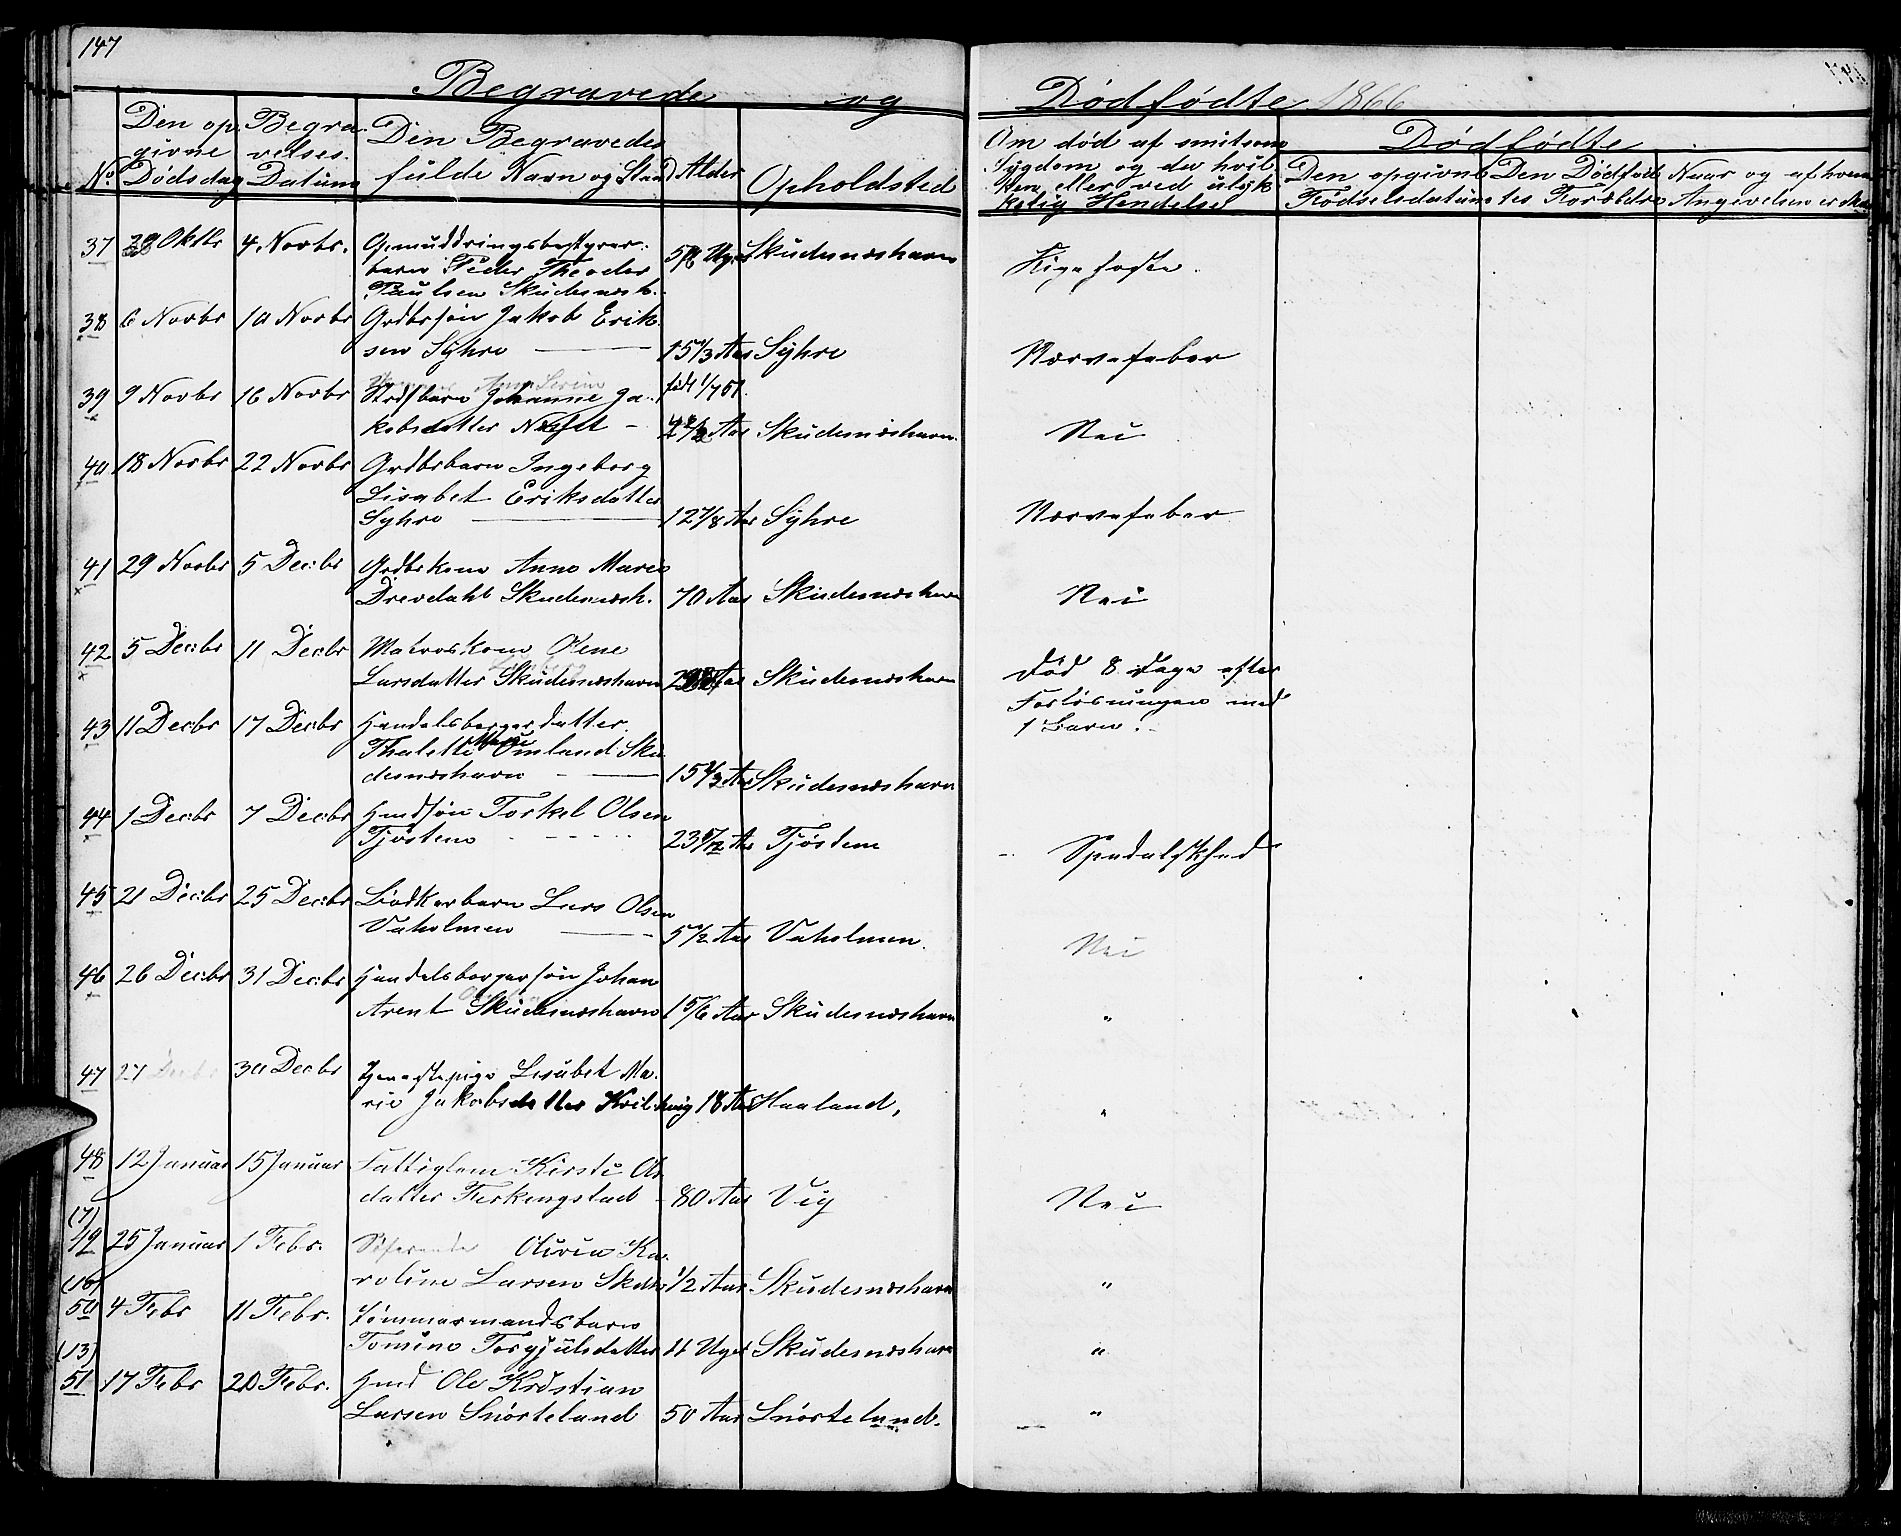 147
Begravede og Dødfødte 1866
No
Den op-
givne
Dødsdag
Begra-
velses-
Datum
Den Begravedes
fulde Navn og Stand
Alder
Opholdsted
Om død af smitsom
Sygdom og da hvil-
ken, eller ved ulyk-
kelig Hendelse
Dødfødte
Den opgivne
Fødselsdatum
Den Dødfød-
tes Forældre
Naar og af hvem
Angivelsen er skeet
37 29 Oktbr 4. Novbr.
barn Peder Theodor
Paulsen Skudesnesh. Uger Skudesneshavn
38 6 Novbr 10 Novbr Grdbrsøn Jakob Erik-
sen Syhre 15 1/3 Aar Syhre Nervefeber
39 9 Novbr 16 Novbr Johanne Ja-
født 1/7 51.
kobsdatter Aar Skudesneshavn. Nei
40 18 Novbr 22 Novbr Grdbrbarn Ingeborg
Lisabet Eriksdatter
Syhre 12 7/8 Aar Syhre Nervefeber
41 29 Novbr 5 Decbr Grdbrkone Anne Marie
Drevdahl Skudesnesh. 70 Aar Skudesneshavn Nei
42 5 Decbr 11 Decbr Matroskone Olene
Larsdatter Skudesneshavn Aar Skudesneshavn
Død 8 Dage efter
Forløsningen med
1 Barn.
43 11 Decbr 17 Decbr Handelsborgerdatter
Thalette Marie Omland Sku-
desneshavn 15 2/3 Aar Skudesneshavn
44 1 Decbr 7 Decbr Hmdssøn Torkel Olsen
Tjøstem 23 Aar Tjøstem Spedalskhed
45 21 Decbr 25 Decbr Bødkerbarn Lars Olsen
Vaholmen 5 1/2 Aar Vaholmen. Nei
46 26 Decbr 31 Decbr Handelsborgersøn Johan
Arent Skudesneshavn 1 5/6 Aar Skudesneshavn "
47 27 Decbr 30 Decbr Tjenestepige Lisabet Ma-
rie Jakobsdatter 18 Aar Haaland, "
48 12 Januar 15 Januar Fattiglem Kirsti Ols-
datter Ferkengstad 80 Aar Vig Nei
49 25 Januar 1 Febr. Olivia Ka-
roline Larsen 1/2 Aar Skudesneshavn "
50 4 Febr 11 Febr. Tømmermandsbarn
Tomine Torgjulsdatter 11 Uger Skudesneshavn "
(13)
51 17 Febr 20 Febr. Hmd Ole Kristian
Larsen Snørteland 50 Aar Snørteland. "